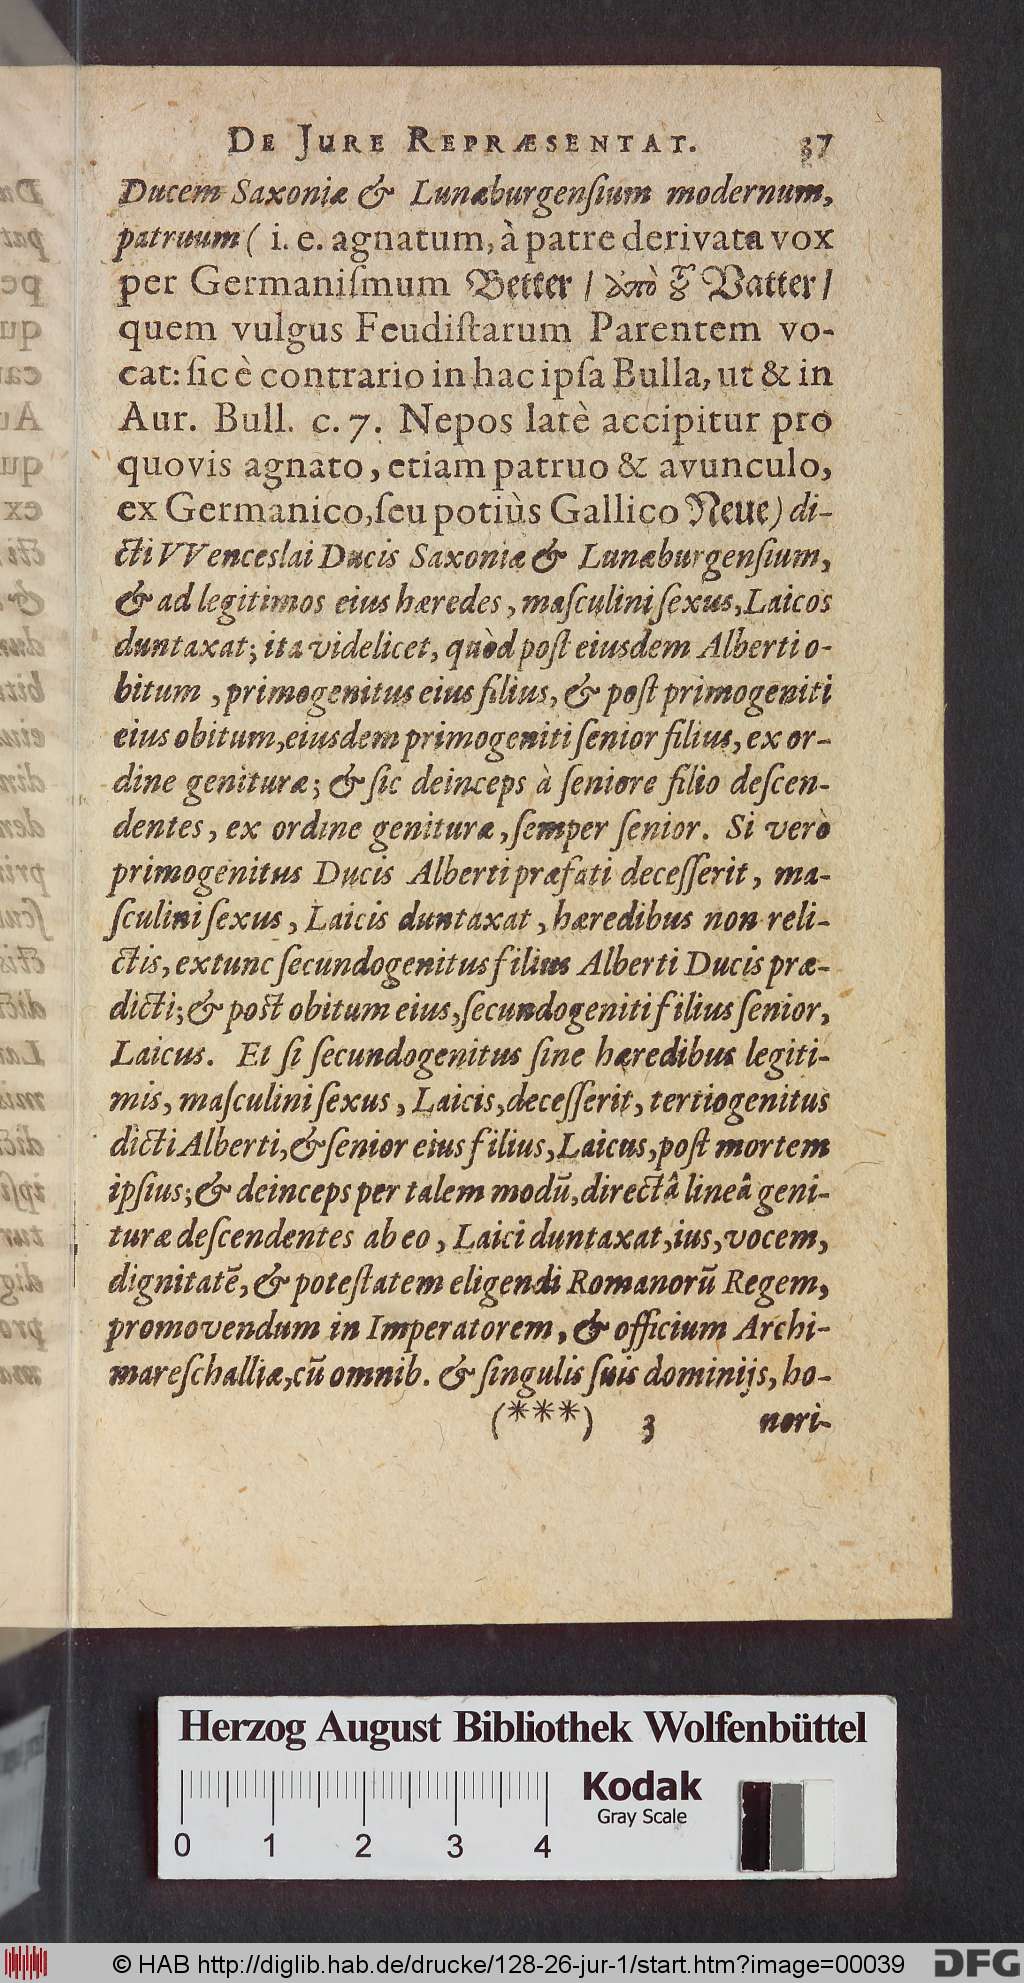 DE JURE REPRÆSENTAT. 37
Ducem Saxoniæ & Lunæburgenſium modernum,
patruum ( i. e. agnatum, à patre derivata vox
per Germaniſmum Vetter / ἀπὸ τοῦ Vatter /
quem vulgus Feudiſtarum Parentem vo-
cat: ſic è contrario in hac ipſa Bulla, ut & in
Aur. Bull. c. 7. Nepos latè accipitur pro
quovis agnato, etiam patruo & avunculo,
ex Germanico, ſeu potiùs Gallico Neue) di-
cti VVenceslai Ducis Saxoniæ & Lunæburgenſium,
& ad legitimos eius hæredes, maſculini ſexus, Laicos
duntaxat; ita videlicet, quòd poſt eiusdem Alberti o-
bitum, primogenitus eius filius, & poſt primogeniti
eius obitum, eiusdem primogeniti ſenior filius, ex or-
dine genituræ; & ſic deinceps à ſeniore filio deſcen-
dentes, ex ordine genituræ, ſemper ſenior. Si verò
primogenitus Ducis Alberti præfati deceſſerit, ma-
ſculini ſexus, Laicis duntaxat, hæredibus non reli-
ctis, extunc ſecundogenitus filius Alberti Ducis præ-
dicti; & poſt obitum eius, ſecundogeniti filius ſenior,
Laicus. Et ſi ſecundogenitus ſine hæredibus legiti-
mis, maſculini ſexus, Laicis, deceſſerit, tertiogenitus
dicti Alberti, & ſenior eius filius, Laicus, poſt mortem
ipſius; & deinceps per talem modū, directâ lineâ geni-
turæ deſcendentes ab eo, Laici duntaxat, ius, vocem,
dignitatē, & poteſtatem eligendi Romanorū Regem,
promovendum in Imperatorem, & officium Archi-
mareſchalliæ, cū omnib. & ſingulis ſuis dominijs, ho-
(***) 3 nori-
Herzog August Bibliothek Wolfenbüttel
Kodak
Gray Scale
0 1 2 3 4
© HAB http://diglib.hab.de/drucke/128-26-jur-1/start.htm?image=00039
DFG